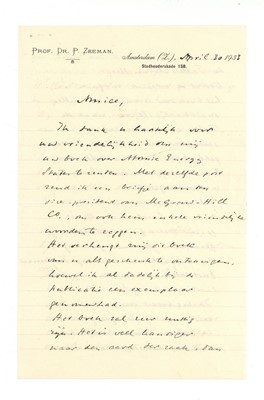 PROF. DR. P. ZEEMAN.
Amsterdam (Z.), April 30 1933
Stadhouderskade 158.
Amice,
Ik dank u hartelijk voor
uw vriendelijkheid om mij
uw boek over Atomic Energy
States te zenden. Met dezelfde post
zend ik een briefje aan den
vice-president van Mc Graw-Hill
Co., om ook hem enkele vriendelijke
woorden te zeggen.
Het verheugt mij dit boek
van u als geschenk te ontvangen,
hoewel ik al dadelijk bij de
publicatie een exemplaar
genomen had.
Het boek zal zeer nuttig
zijn. Het is veel handiger
naar den aard der zaak, dan